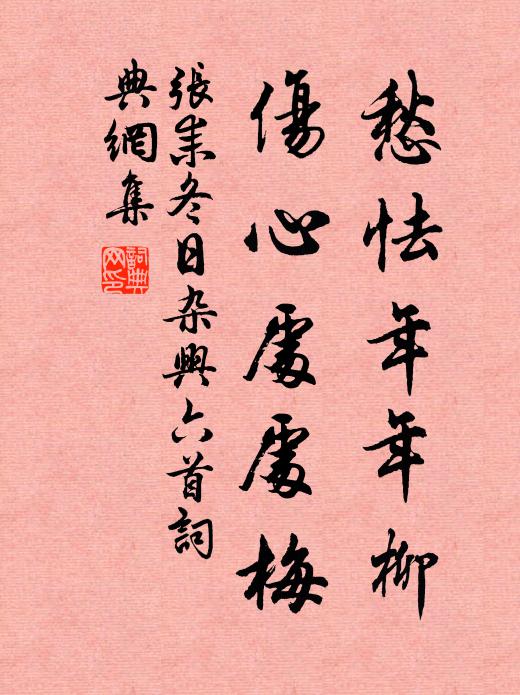 愁怯年年柳
傷心處處梅
張耒冬日杂興六首詞
典網集
詞典
网印